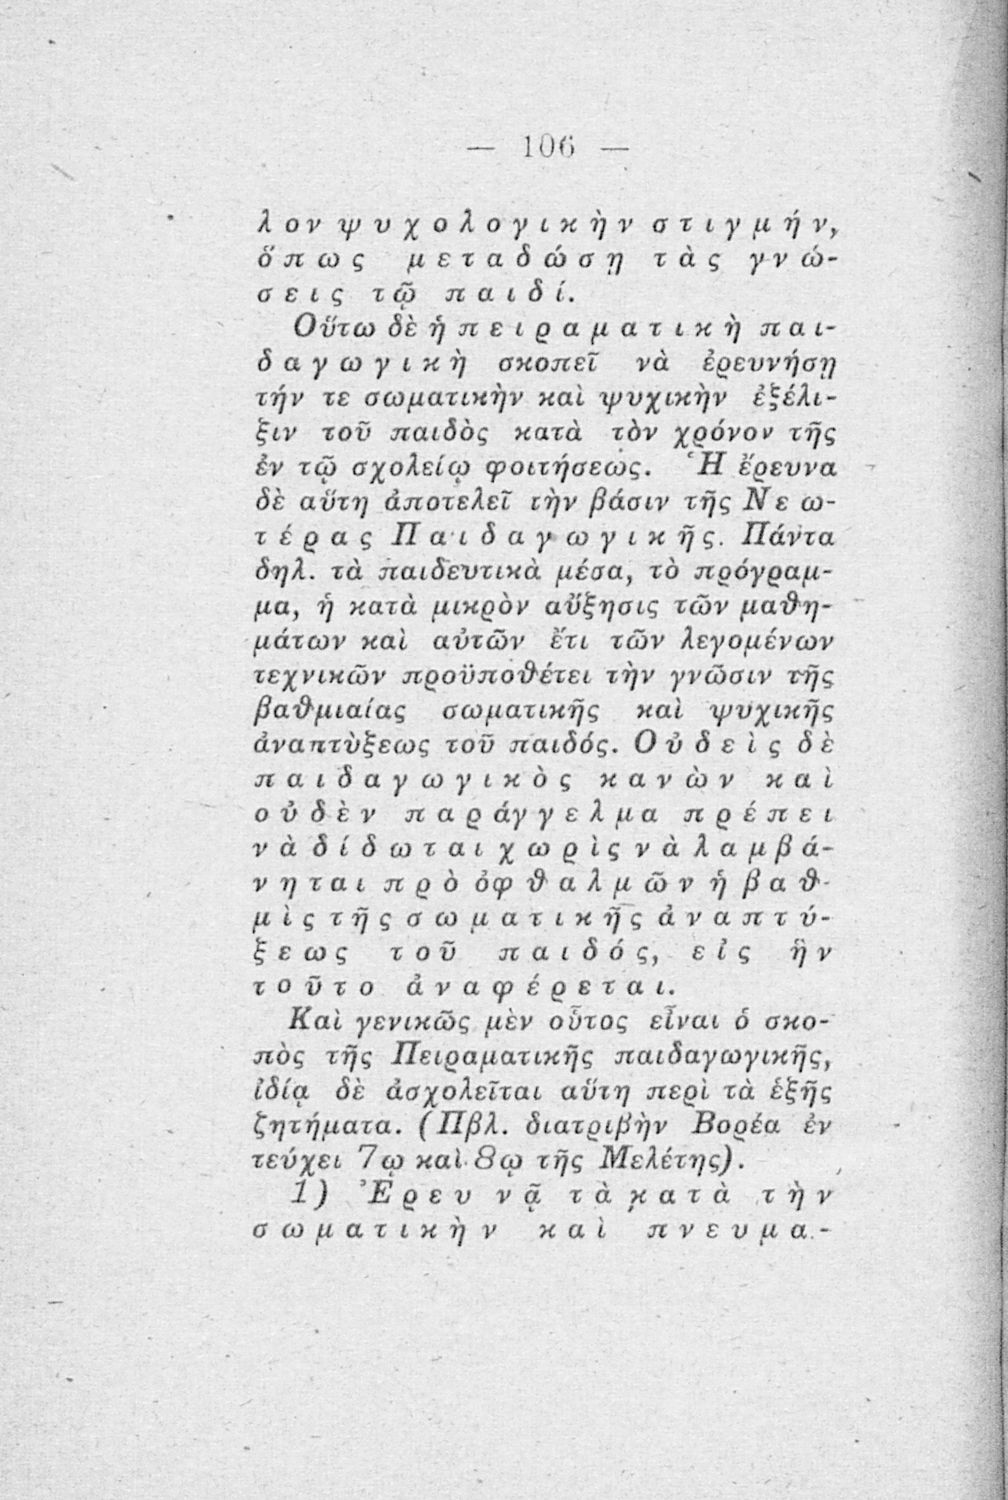 — 106 —
λον ψυχολογικὴν στιγμήν,
ὅπως μεταδώσῃ τὰς γνώ-
σεις τῷ παιδί.
Οὕτω δὲ ἡ πειραματικὴ παι-
δαγωγικὴ σκοπεῖ νὰ ἐρευνήσῃ
τήν τε σωματικὴν καὶ ψυχικὴν ἐξέλι-
ξιν τοῦ παιδὸς κατὰ τὸν χρόνον τῆς
ἐν τῷ σχολείῳ φοιτήσεως. Ἡ ἔρευνα
δὲ αὕτη ἀποτελεῖ τὴν βάσιν τῆς Νεω-
τέρας Παιδαγωγικῆς. Πάντα
δηλ. τὰ παιδευτικὰ μέσα, τὸ πρόγραμ-
μα, ἡ κατὰ μικρὸν αὔξησις τῶν μαθη-
μάτων καὶ αὐτῶν ἔτι τῶν λεγομένων
τεχνικῶν προϋποθέτει τὴν γνῶσιν τῆς
βαθμιαίας σωματικῆς καὶ ψυχικῆς
ἀναπτὺξεως τοῦ παιδός. Οὐδεὶς δὲ
παιδαγωγικὸς κανὼν καὶ
οὐδὲν παράγγελμα πρέπει
νὰ δίδωται χωρὶς νὰ λαμβά-
νηται πρὸ ὀφθαλμῶν ἡ βαθ-
μὶς τῆς σωματικῆς ἀναπτύ-
ξεως τοῦ παιδός, εἰς ἣν
τοῦτο ἀναφέρεται.
Καὶ γενικῶς μὲν οὗτος εἶναι ὁ σκο-
πὸς τῆς Πειραματικῆς παιδαγωγικῆς,
ἰδίᾳ δὲ ἀσχολεῖται αὕτη περὶ τὰ ἑξῆς
ζητήματα. (Πβλ. διατριβὴν Βορέα ἐν
τεύχει 7ῳ καὶ 8ῳ τῆς Μελέτης).
1) Ἐρευνᾷ τὰ κατὰ τὴν
σωματικὴν καὶ πνευμα-